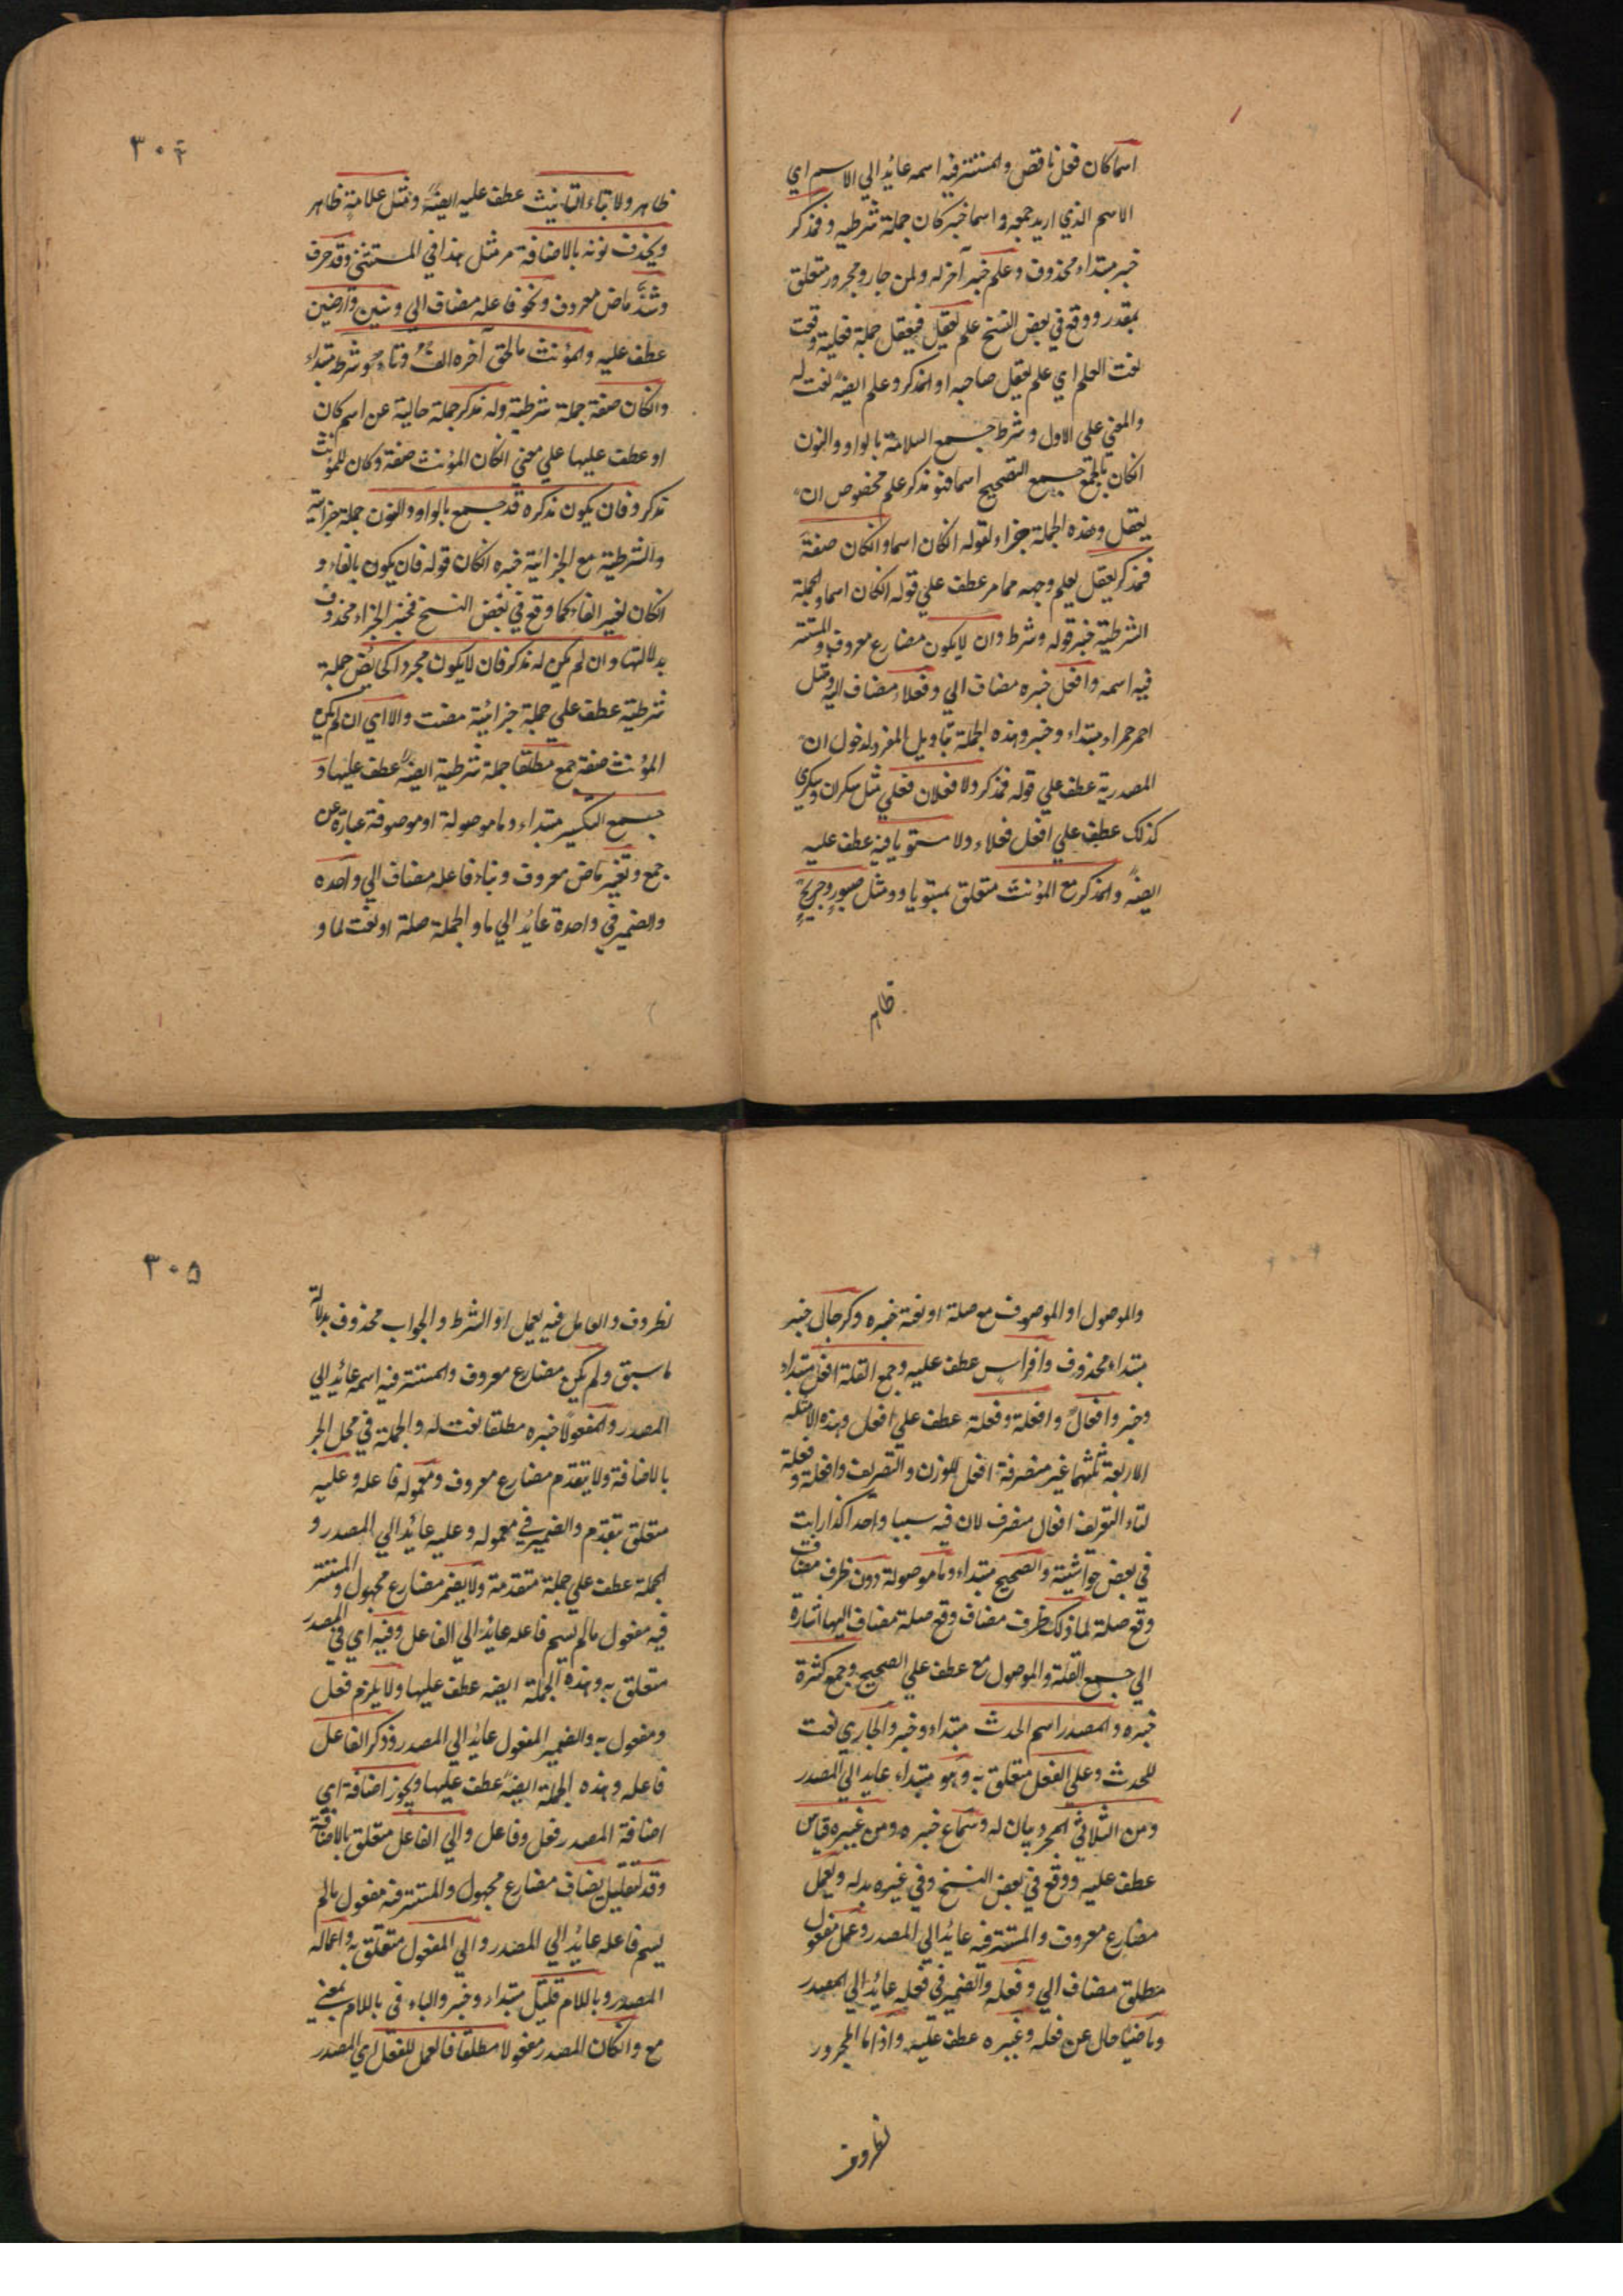 اسما كان فعل ناقص والمستتر فيه اسمه عائد الي الاسم اي
الاسم الذي اريد جمعه واسما خبر كان جملة شرطيه وفمذكر
خبر مبتداء محذوف وعلم خبر آخر له ولمن جار ومجرور متعلق
بمقدر ووقع في بعض النسخ علم يعقل فيعقل جملة فعلية وقعت
نعت العلم اي علم يعقل صاحبه او المذكر وعلم ايضہ نعت له
والمعني علي الاول وشرط جمع السلامة بالواو والنون
انكان بالجمع جمع التصحيح اسما فهو مذكر علم مخصوص ان
يعقل وهذه الجملة جزاء لقوله انكان اسما وانكان صفة
فمذكر يعقل يعلم وجهه مما مر عطف علي قوله انكان اسما والجملة
الشرطية خبر قوله وشرط وان لا يكون مضارع معروف والمستتر
فيه اسمه وافعل خبره مضاف الي وفعلاء مضاف اليه ومثل
احمر حمراء مبتداء وخبر وهذه الجملة بتاويل المفرد لدخول ان
المصدرية عطف علي قوله فمذكر ولا فعلان فعلي مثل سكران وسكري
كذلك عطف علي افعل فعلاء ولا مستويا فيه عطف عليه
ايضہ والمذكر مع المؤنث متعلق بمستويا ومثل صبور وجريح
ظاہر
٣٠٤
ظاهر ولا بتاء التانيث عطف عليه ايضہ ومثل علامة ظاهر
ويحذف نونه بالاضافة مر مثل هذا في المستثني وقد حرف
وشذ ماض معروف ونحو فاعله مضاف الي وسنين وارضين
عطف عليه والمؤنث ما لحق آخره الف وتاء هو شرطه مبتداء
وانكان صفة جملة شرطية وله مذكر جملة حالية عن اسم كان
او عطف عليها علي معني انكان المؤنث صفة وكان للمؤنث
مذكر وفان يكون مذكره قد جمع بالواو والنون جملة جزائية
والشرطية مع الجزائية خبره انكان قوله فان يكون بالفاء و
انكان بغير الفاء كما وقع في بعض النسخ فخبر الجزاء محذوف
بدلالتها وان لم يكن له مذكر فان لا يكون مجردا كحائض جملة
شرطية عطف علي جملة جزائية مضت والا اي ان لم يكن
المؤنث صفة جمع مطلقا جملة شرطية ايضہ عطف عليها و
جمع التكسير مبتداء وما موصولة او موصوفة عبارة عن
جمع وتغير ماض معروف وبناء فاعله مضاف الي واحده
والضمير في واحدة عائد الي ما والجملة صلة او نعت لما و
والموصول او الموصوف مع صلة او نعته خبره وكرجال خبر
مبتداء محذوف وافراس عطف عليه وجمع القلة افعل مبتداء
وخبر وافعال وافعلة وفعلة عطف علي افعل وهذه الامثلة
الاربعة ثلثها غير منصرفة افعل للوزن والتعريف وافعلة وفعلة
لتاء التعريف افعال منصرف لان فيه سببا واحدا كذا رايت
في بعض حواشية والصحيح مبتداء وما موصولة دون ظرف مضاف
وقع صلة لما ذلك ظرف مضاف وقع صلة مضاف اليها اشارة
الي جمع القلة والموصول مع عطف علي الصحيح وجمع كثرة
خبره والمصدر اسم الحدث مبتداء وخبر والجاري نعت
للحدث وعلي الفعل متعلق به وهو مبتداء عايد الي المصدر
ومن الثلاثي المجرد بيان له وسماع خبره ومن غيره قياس
عطف عليه ووقع في بعض النسخ وفي غيره بدله ويعمل
مضارع معروف والمستتر فيه عائد الي المصدر وعمل مفعول
مطلق مضاف الي وفعله والضمير في فعله عائد الي المصدر
وماضيا حال عن فعله وغيره عطف عليه واذا ما المجرور
نظروف
٣٠٥
نظروف والعامل فيه يعمل او الشرط والجواب محذوف بدلالة
ما سبق ولم يكن مضارع معروف والمستتر فيه اسمه عائد الي
المصدر والمفعولا خبره مطلقا نعت له والجملة في محل الجر
بالاضافة ولا يتقدم مضارع معروف ومعموله فاعله وعليه
متعلق بتقدم والضمير في معموله وعليه عائد الي المصدر و
الجملة عطف علي جملة متقدمة ولا يضمر مضارع مجهول والمستتر
فيه مفعول ما لم يسم فاعله عايد الي الفاعل وفيه اي في المصدر
متعلق به وهذه الجملة ايضہ عطف عليها ولا يلزم فعل
ومفعول به والضمير المفعول عايد الي المصدر وذكر الفاعل
فاعله وهذه الجملة ايضہ عطف عليها ويجوز اضافة اي
اضافة المصدر فعل وفاعل والي الفاعل متعلق بالاضافة
وقد لتقليل يضاف مضارع مجهول والمستتر فيه مفعول ما لم
يسم فاعله عايد الي المصدر والي المفعول متعلق به واعماله
المصدر وباللام قليل مبتداء وخبر والباء في باللام بمعني
مع وانكان المصدر مفعولا مطلقا فالعمل للفعل اي المصدر